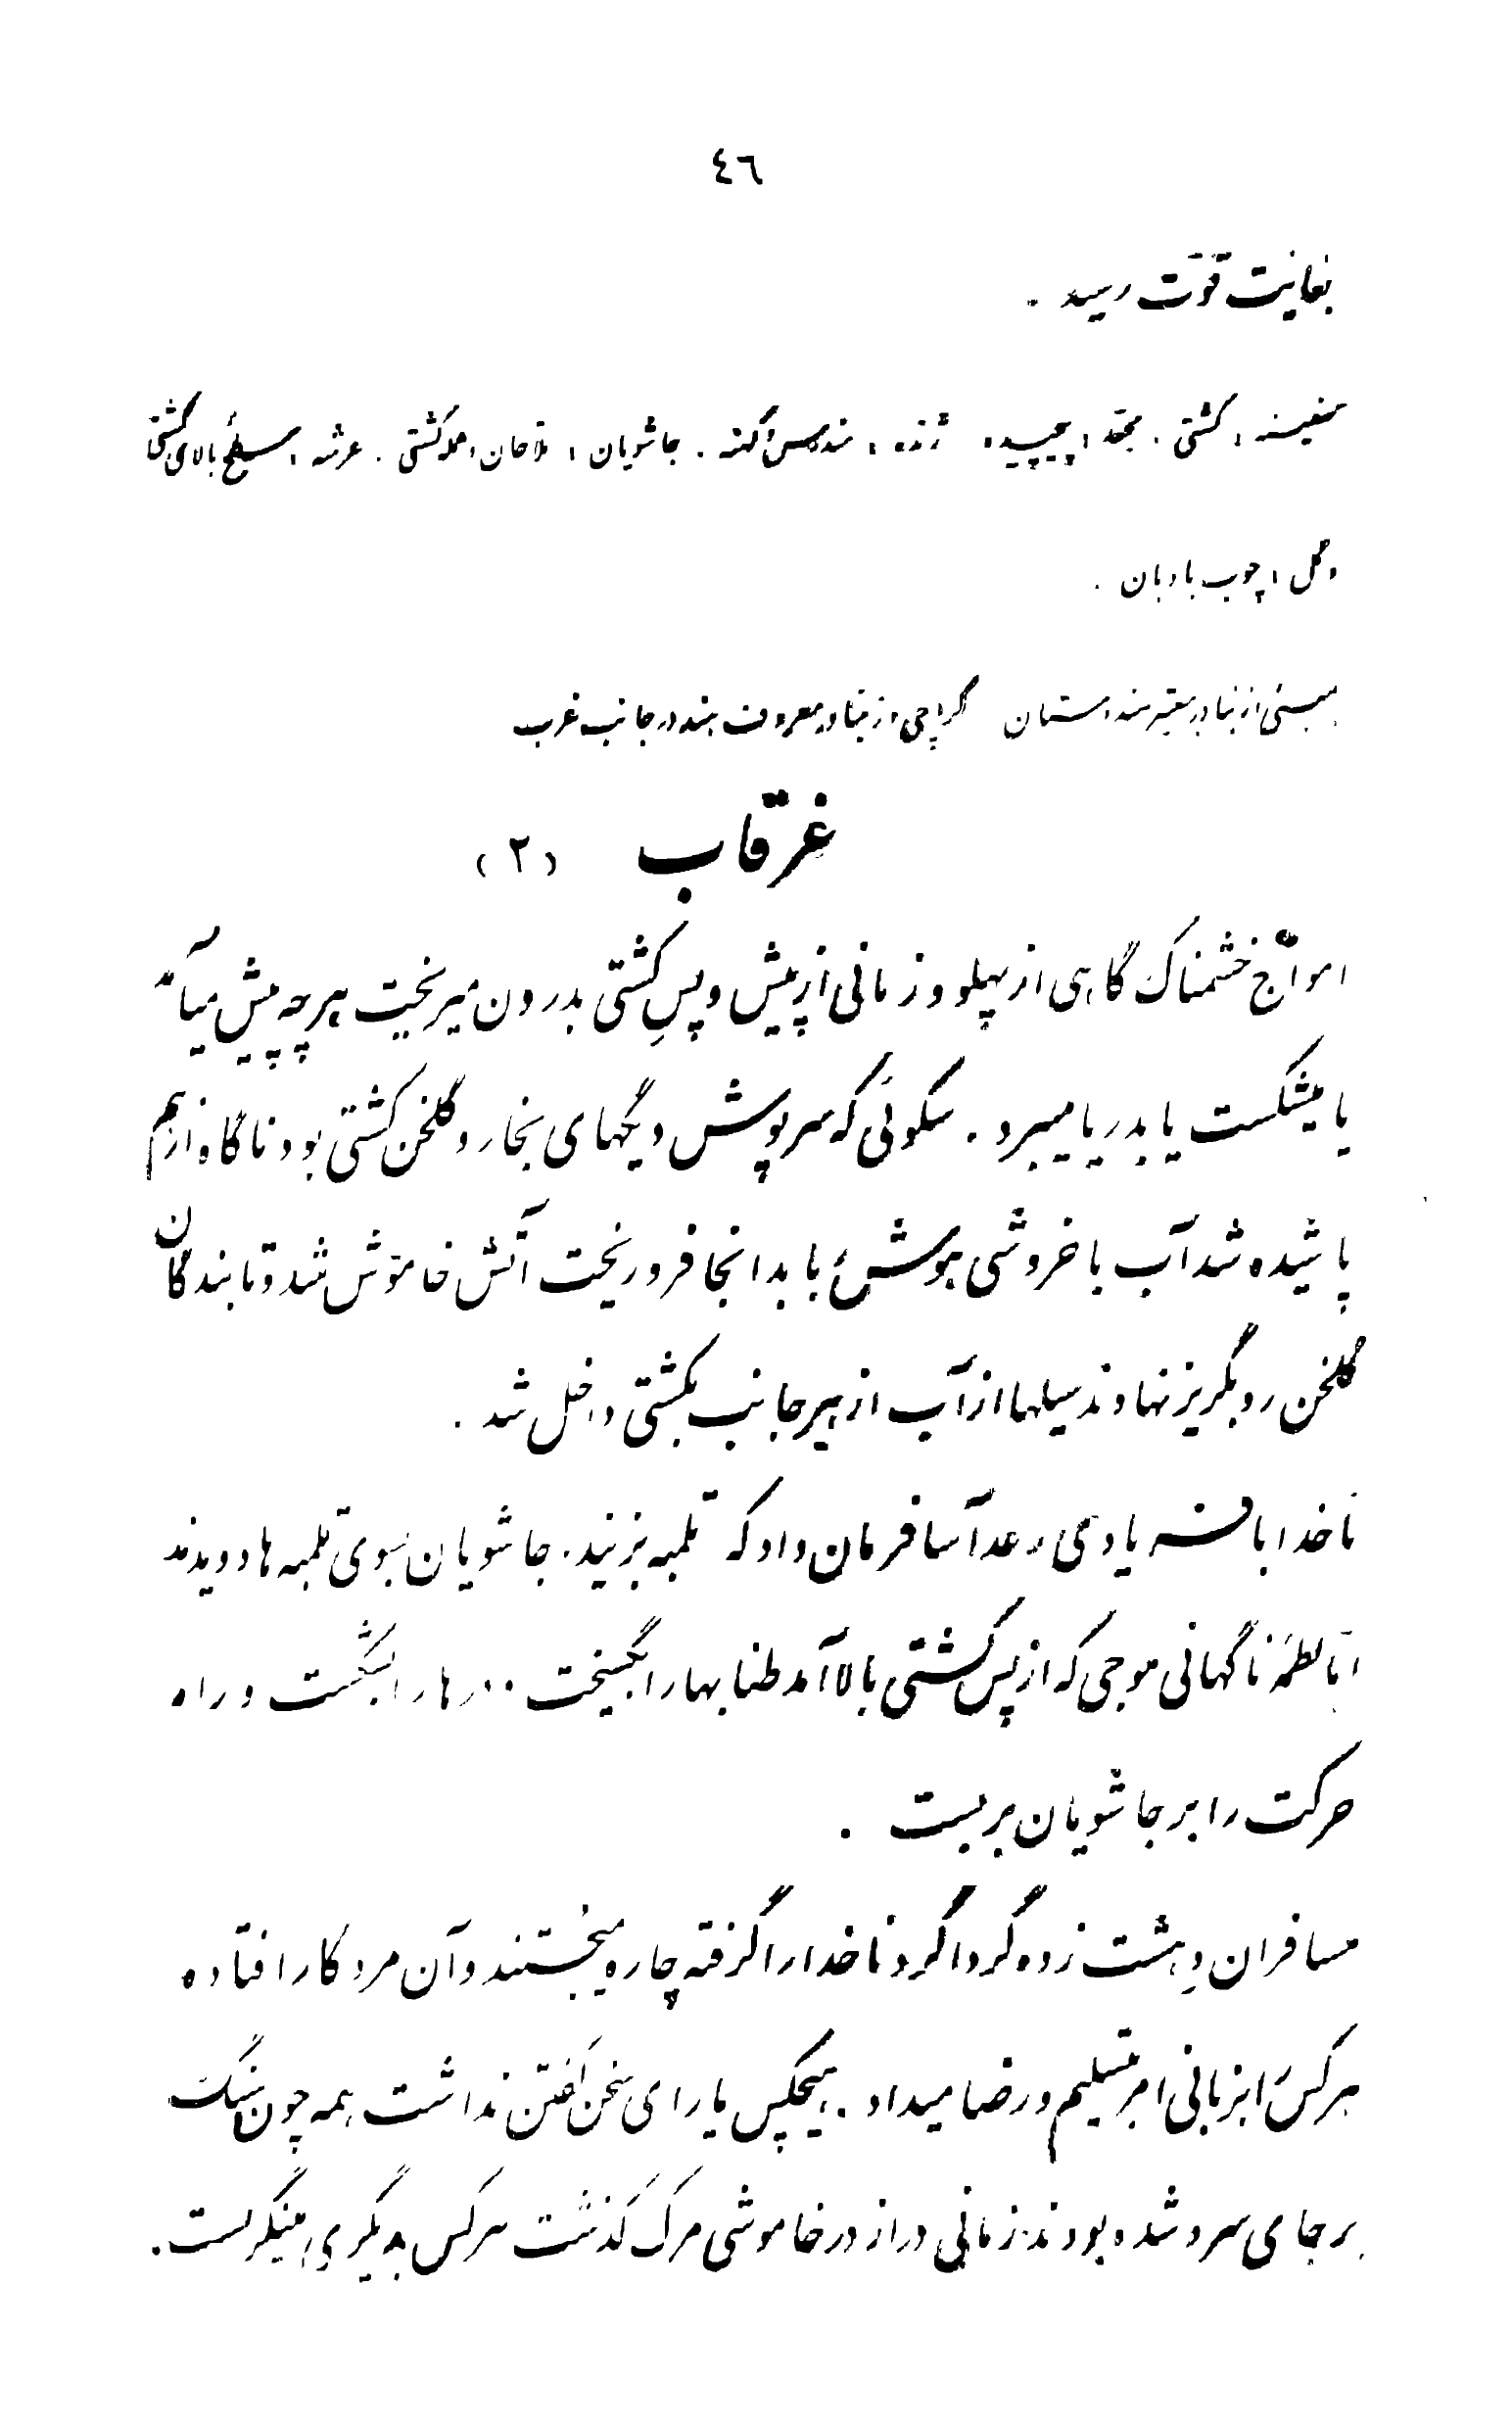 ٤٦
بغایت قوّت رسید .
سفینه ، کشتی . مجعّد ، پیچیده . ژنده ، مندرس و کهنه . جاشویان ، ملاحان و عملهٔ کشتی . عرشه ، سطح بالای کشتی
دکل ، چوب بادبان .
بمبئی از بنادر معتبر هندوستان کراچی از بنادر معروف هند در جانب غرب
غرقاب (۲)
امواج خشمناک گاهی از پهلو و زمانی از پیش و پسِ کشتی بدرون میریخت هرچه پیش میآمد
یا میشکست یا بدریا میبرد . سکوئی که سرپوش دیگهای بخار و گلخن کشتی بود ناگاه از هم
پاشیده شد آب با خروشی هوش ربا بدانجا فرو ریخت آتش خاموش شد و تابندگان
گلخن رو بگریز نهادند سیلها از آب از هر جانب بکشتی داخل شد .
ناخدا با فریادی رعدآسا فرمان داد که تلمبه بزنید . جاشویان بسوی تلمبه ها دویدند
امّا لطمهٔ ناگهانی موجی که از پس کشتی بالا آمد طنابها را بگسیخت درها را بشکست و راه
حرکت را بر جاشویان بر بست .
مسافران دهشت زده گرداگرد ناخدا را گرفته چاره میجستند و آن مرد کار افتاده
هرکس را بزبانی امر بتسلیم و رضا میداد . هیچکس یارای سخن گفتن نداشت همه چون سنگ
بر جای سرد شده بودند زمانی دراز در خاموشی مرگ گذشت هرکس بدیگری مینگریست .